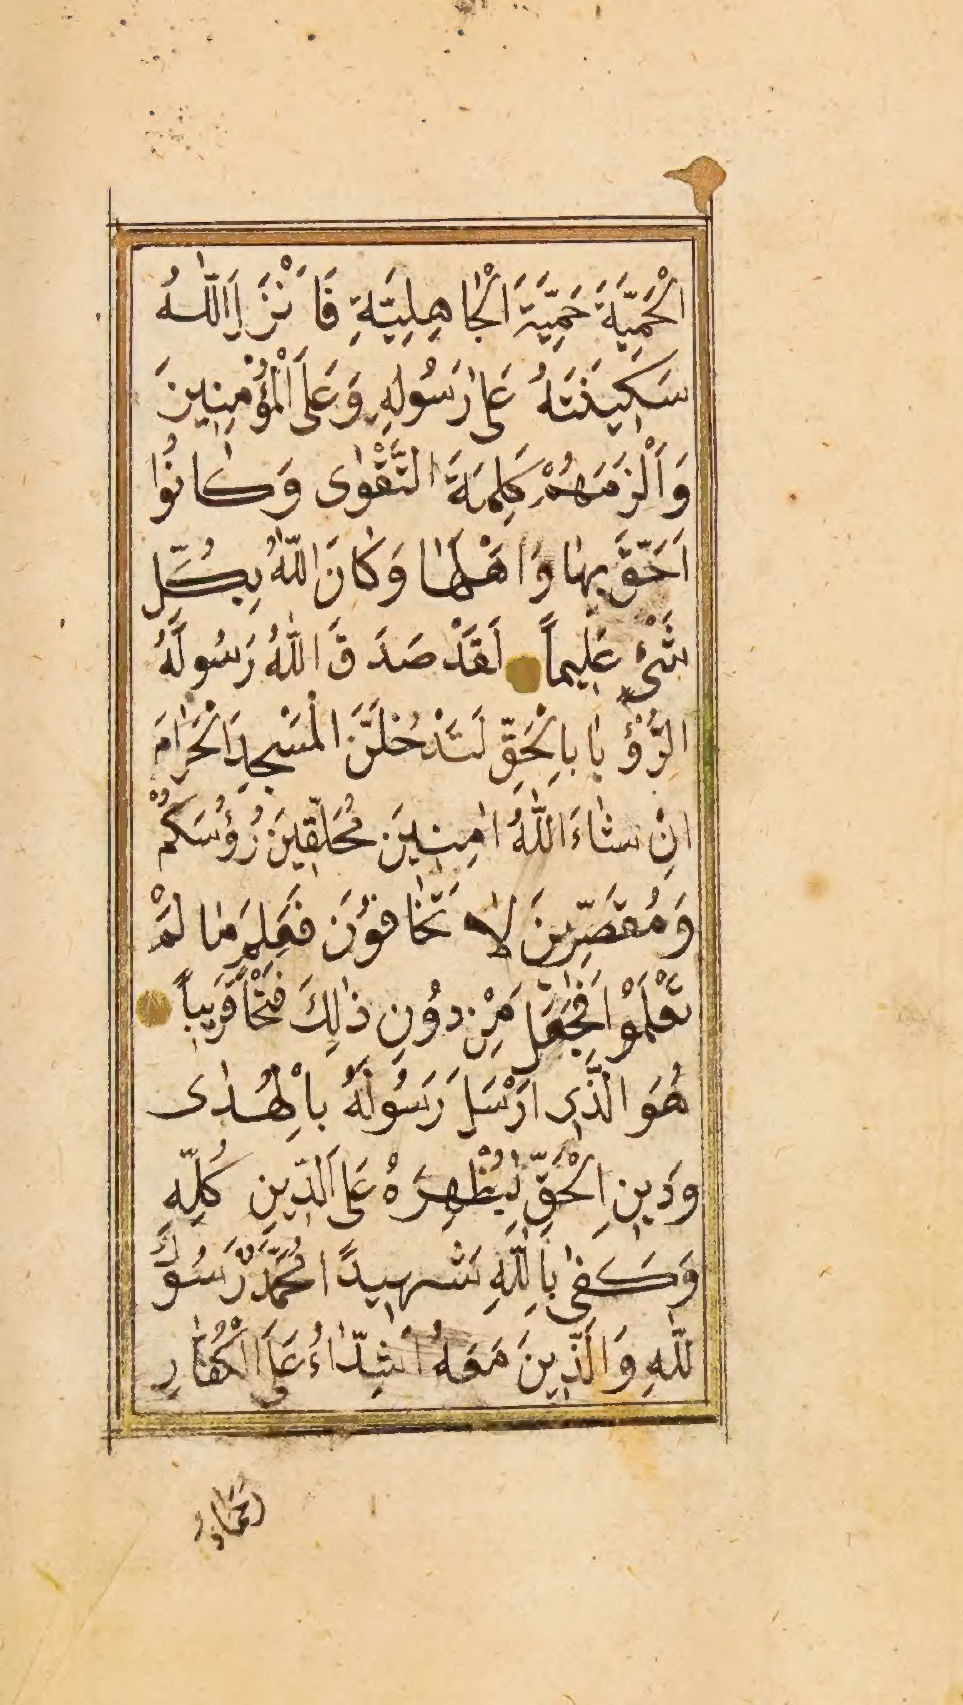 الْحَمِيَّةَ حَمِيَّةَ الْجَاهِلِيَّةِ فَاَنْزَلَ اللّٰهُ
سَكِينَتَهُ عَلٰى رَسُولِهِ وَعَلَى الْمُؤْمِنِينَ
وَاَلْزَمَهُمْ كَلِمَةَ التَّقْوٰى وَكَانُوا
اَحَقَّ بِهَا وَاَهْلَهَا وَكَانَ اللّٰهُ بِكُلِّ
شَيْءٍ عَلِيماً لَقَدْ صَدَقَ اللّٰهُ رَسُولَهُ
الرُّؤْيَا بِالْحَقِّ لَتَدْخُلَنَّ الْمَسْجِدَ الْحَرَامَ
اِنْ شَاءَ اللّٰهُ اٰمِنِينَ مُحَلِّقِينَ رُؤُسَكُمْ
وَمُقَصِّرِينَ لَا تَخَافُونَ فَعَلِمَ مَا لَمْ
تَعْلَمُوا فَجَعَلَ مِنْ دُونِ ذٰلِكَ فَتْحاً قَرِيباً
هُوَ الَّذِى اَرْسَلَ رَسُولَهُ بِالْهُدٰى
وَدِينِ الْحَقِّ لِيُظْهِرَهُ عَلَى الدِّينِ كُلِّهِ
وَكَفٰى بِاللّٰهِ شَهِيدًا مُحَمَّدٌ رَسُولُ
اللّٰهِ وَالَّذِينَ مَعَهُ اَشِدَّاءُ عَلَى الْكُفَّارِ